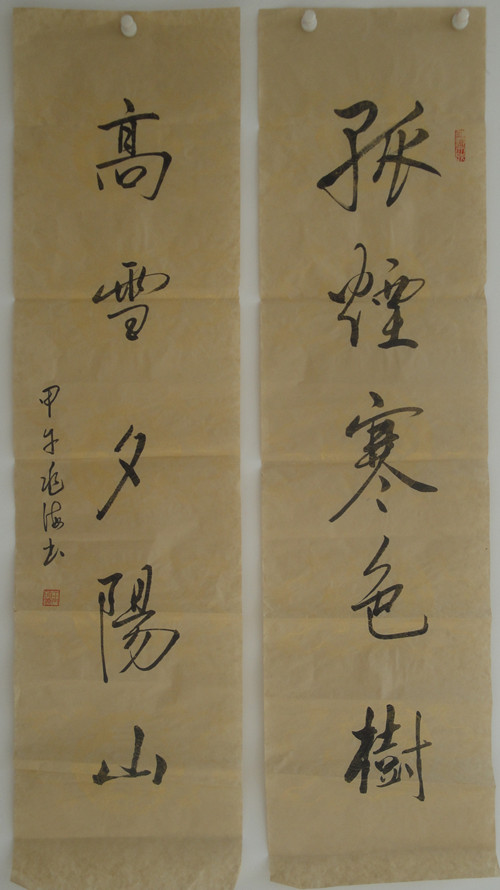 孤煙寒色樹
高雪夕陽山
甲午兆海书